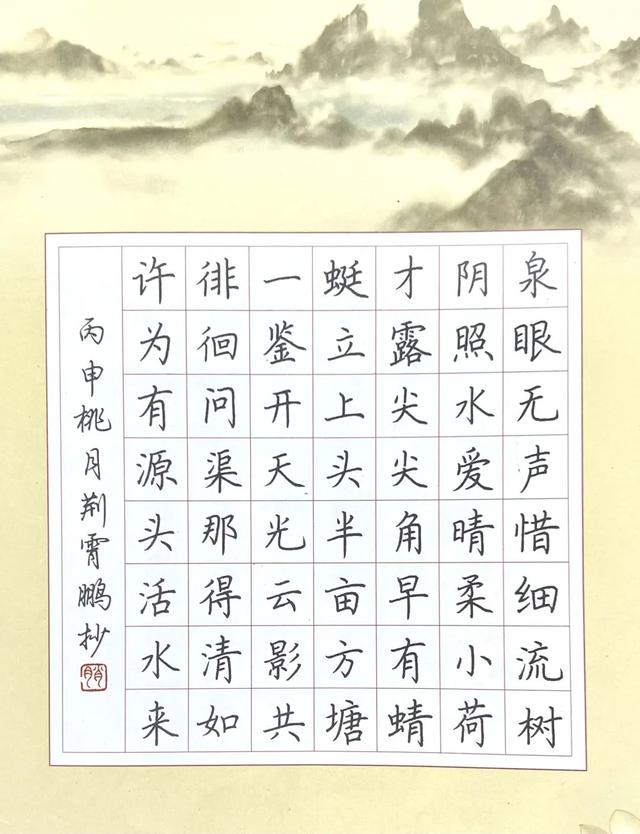 泉眼无声惜细流树
阴照水爱晴柔小荷
才露尖尖角早有蜻
蜓立上头半亩方塘
一鉴开天光云影共
徘徊问渠那得清如
许为有源头活水来
丙申桃月荆霄鹏抄